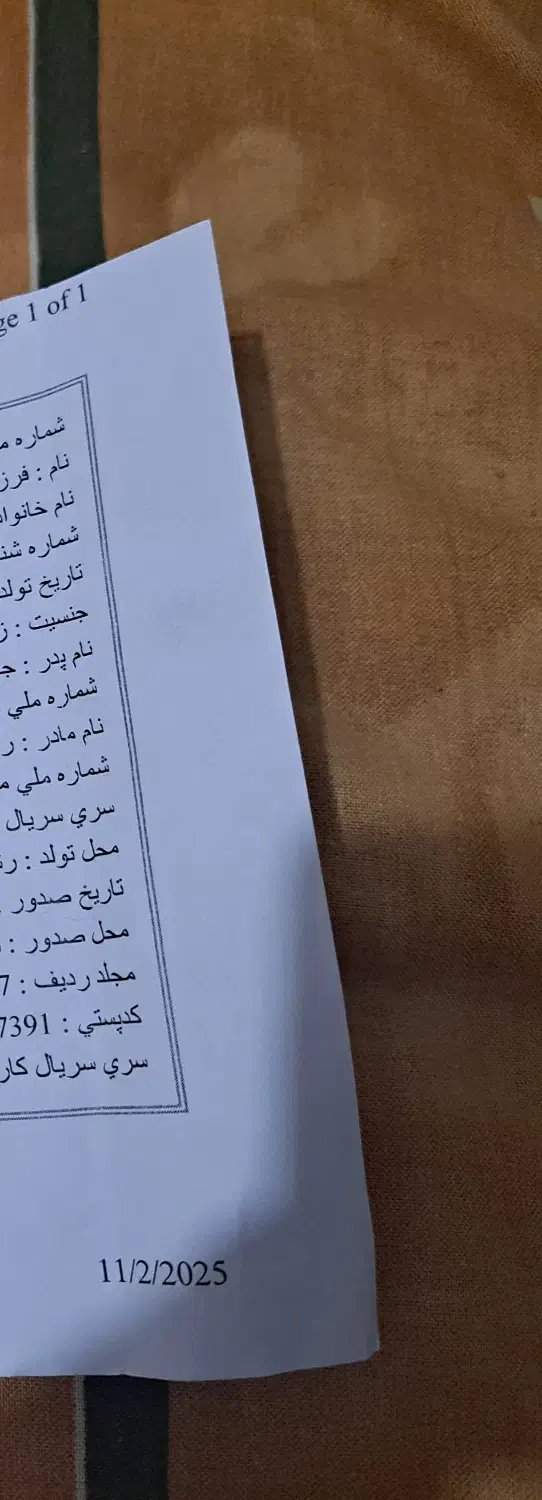 ge 1 of 1
شماره م
نام : فرز
نام خانواد
شماره شن
تاريخ تولد
جنسيت : ز
نام پدر : ج
شماره ملي
نام مادر : ر
شماره ملي م
سري سريال
محل تولد : رش
تاريخ صدور :
محل صدور :
مجلد رديف : 7
كدپستي : 7391
سري سريال كار
11/2/2025